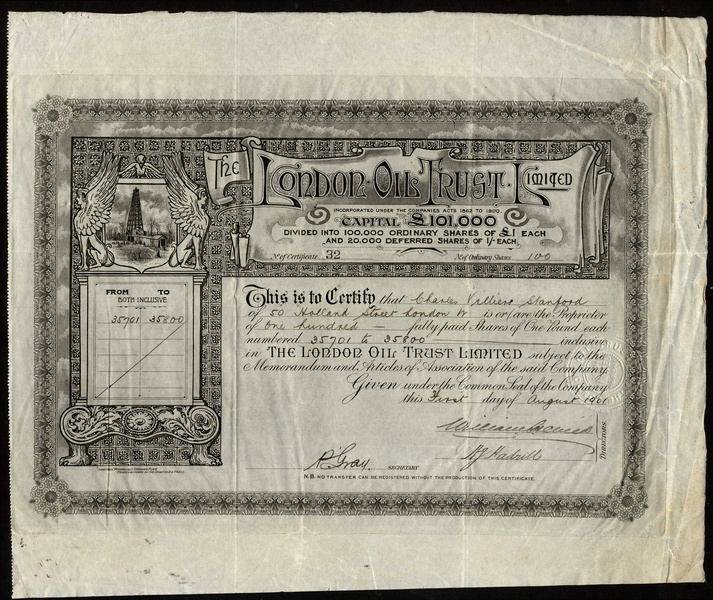 The London Oil Trust Limited
INCORPORATED UNDER THE COMPANIES ACTS 1862 TO 1900.
CAPITAL £101,000
DIVIDED INTO 100,000 ORDINARY SHARES OF £1 EACH
AND 20,000 DEFERRED SHARES OF 1/- EACH.
No. of Certificate 32 No. of Ordinary Shares 100
FROM TO
BOTH INCLUSIVE
35701 35800
This is to Certify that Charles Villiers Stanford
of 50 Holland Street London W is or/are the Proprietor
of One hundred — fully paid Shares of One Pound each
numbered 35701 to 35800 inclusive
in THE LONDON OIL TRUST LIMITED subject to the
Memorandum and Articles of Association of the said Company.
Given under the Common Seal of the Company
this First day of August 1901
DIRECTORS.
Gray. SECRETARY
N.B. NO TRANSFER CAN BE REGISTERED WITHOUT THE PRODUCTION OF THIS CERTIFICATE.